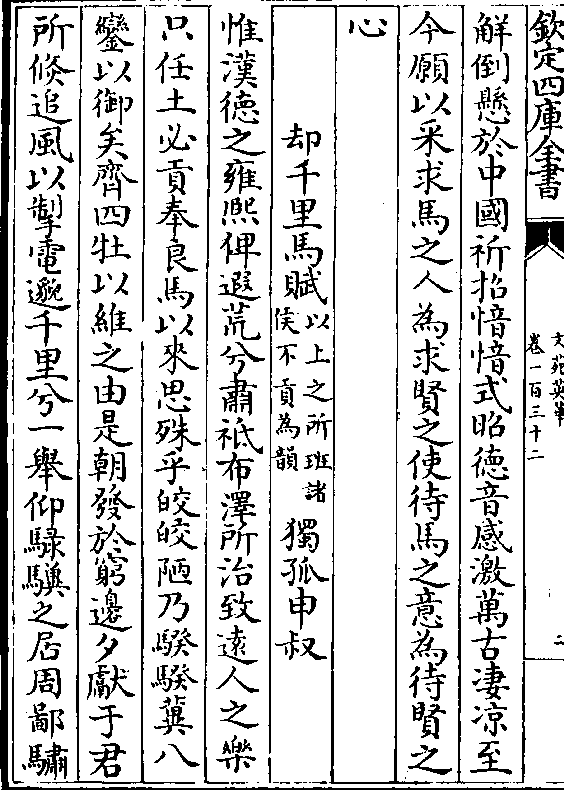 欽定四庫全書
文苑英華
卷一百三十二
二
解倒懸於中國祈招愔愔式昭德音感激萬古凄凉至
今願以采求馬之人為求賢之使待馬之意為待賢之
心
却千里馬賦以上之所班諸侯不貢為韻 獨孤申叔
惟漢德之雍熈俾遐荒兮肅祗布澤所洽致遠人之樂
只任土必貢奉良馬以來思殊乎皎皎陋乃騤騤冀八
鑾以御矣齊四牡以維之由是朝發於窮邊夕獻于君
所倏追風以掣電邈千里兮一舉仰騄驥之居周鄙驌